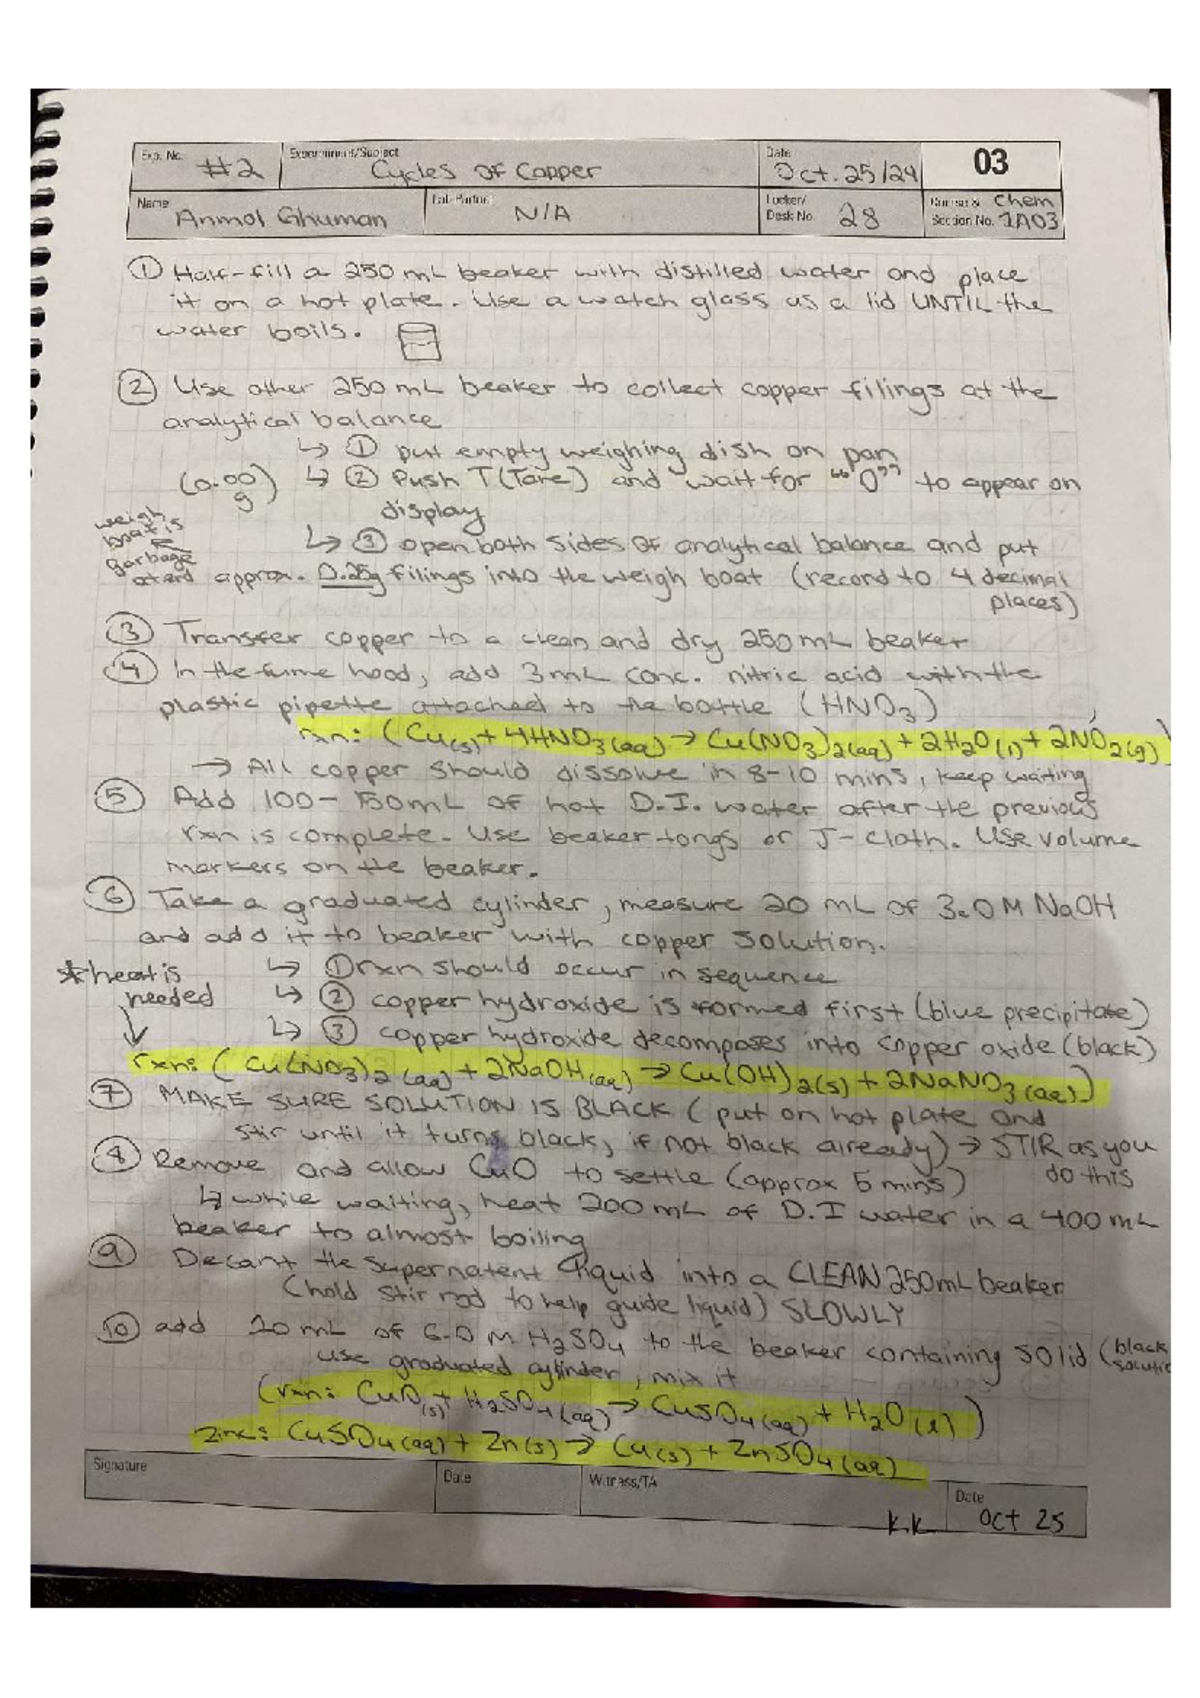 Exp. No. #2 Experiment/Subject Cycles of Copper Date Oct. 25/24 03
Name Anmol Ghuman Lab Partner N/A Locker/Desk No. 28 Course & Section No. Chem 1A03
① Half-fill a 250 mL beaker with distilled water and place
it on a hot plate. Use a watch glass as a lid UNTIL the
water boils.
② Use other 250 mL beaker to collect copper filings at the
analytical balance
↳ ① put empty weighing dish on pan
(0.00 g) ↳ ② Push T (Tare) and wait for "0" to appear on
display
weigh boat is garbage at end
↳ ③ open both sides of analytical balance and put
approx. 0.25g filings into the weigh boat (record to 4 decimal
places)
③ Transfer copper to a clean and dry 250 mL beaker
④ In the fume hood, add 3mL conc. nitric acid with the
plastic pipette attached to the bottle (HNO3)
rxn: (Cu(s) + 4HNO3(aq) → Cu(NO3)2(aq) + 2H2O(l) + 2NO2(g))
→ All copper should dissolve in 8-10 mins, keep waiting
⑤ Add 100-150mL of hot D.I. water after the previous
rxn is complete. Use beaker tongs or J-cloth. Use volume
markers on the beaker.
⑥ Take a graduated cylinder, measure 20 mL of 3.0 M NaOH
and add it to beaker with copper solution.
*heat is needed ↓
↳ ① rxn should occur in sequence
↳ ② copper hydroxide is formed first (blue precipitate)
↳ ③ copper hydroxide decomposes into copper oxide (black)
rxn: (Cu(NO3)2(aq) + 2NaOH(aq) → Cu(OH)2(s) + 2NaNO3(aq))
⑦ MAKE SURE SOLUTION IS BLACK (put on hot plate and
stir until it turns black, if not black already) → STIR as you
do this
⑧ Remove and allow CuO to settle (approx 5 mins)
↳ while waiting, heat 200 mL of D.I water in a 400 mL
beaker to almost boiling
⑨ Decant the supernatent liquid into a CLEAN 250mL beaker
(hold stir rod to help guide liquid) SLOWLY
⑩ add 20 mL of 6.0 M H2SO4 to the beaker containing solid (black
use graduated cylinder, mix it
(rxn: CuO(s) + H2SO4(aq) → CuSO4(aq) + H2O(l))
zinc: CuSO4(aq) + Zn(s) → Cu(s) + ZnSO4(aq)
Signature Date Witness/TA K.K. Date Oct 25